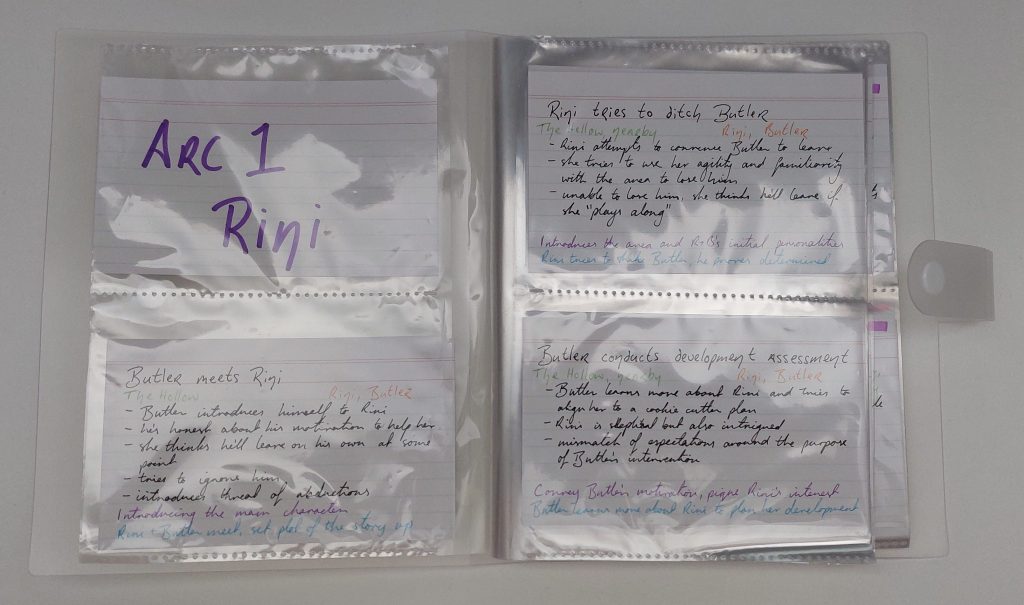 ARC 1
Rini
Butler meets Rini
The Hollow
Rini, Butler
- Butler introduces himself to Rini
- he's honest about his motivation to help her
- she thinks he'll leave on his own at some
point
- tries to ignore him
- introduces threat of abductions
Introducing the main characters
Rini + Butler meet, set plot of the story up
Rini tries to ditch Butler
The Hollow, nearby
Rini, Butler
- Rini attempts to convince Butler to leave
- she tries to use her agility and familiarity
with the area to lose him
- unable to lose him, she thinks he'll leave if
she "plays along"
Introduces the area and R+B's initial personalities
Rini tries to shake Butler, he proves determined
Butler conducts development assessment
The Hollow, nearby
Rini, Butler
- Butler learns more about Rini and tries to
align her to a cookie cutter plan
- Rini is skeptical but also intrigued
- mismatch of expectations around the purpose
of Butler's intervention
Convey Butler's motivation, pique Rini's interest
Butler learns more about Rini to plan her development